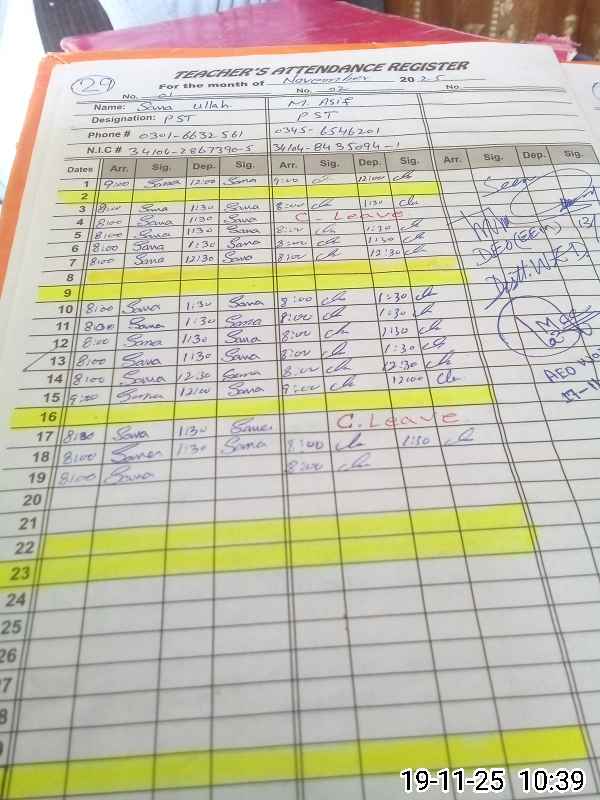 29
TEACHER'S ATTENDANCE REGISTER
For the month of November 2025
No. 01 No. 02 No.
Name: Sana ullah M. Asif
Designation: PST PST
Phone # 0301-6632561 0345-6546201
N.I.C # 34104-2867390-5 34104-8435094-1
Dates Arr. Sig. Dep. Sig. Arr. Sig. Dep. Sig. Arr. Sig. Dep. Sig.
1 9:00 Sana 12:00 Sana 9:00 12:00
2
3 8:00 Sana 1:30 Sana 8:00 1:30
4 8:00 Sana 1:30 Sana C. Leave
5 8:00 Sana 1:30 Sana 8:00 1:30
6 8:00 Sana 1:30 Sana 8:00 1:30
7 8:00 Sana 12:30 Sana 8:00 12:30
8
9
10 8:00 Sana 1:30 Sana 8:00 1:30
11 8:00 Sana 1:30 Sana 8:00 1:30
12 8:00 Sana 1:30 Sana 8:00 1:30
13 8:00 Sana 1:30 Sana 8:00 1:30
14 8:00 Sana 12:30 Sana 8:00 12:30
15 9:00 Sana 12:00 Sana 9:00 12:00
16
17 8:00 Sana 1:30 Sana C. Leave
18 8:00 Sana 1:30 Sana 8:00 1:30
19 8:00 Sana 8:00
20
21
22
23
24
25
26
7
8
DEO(EEM)
AEO
19-11-25 10:39